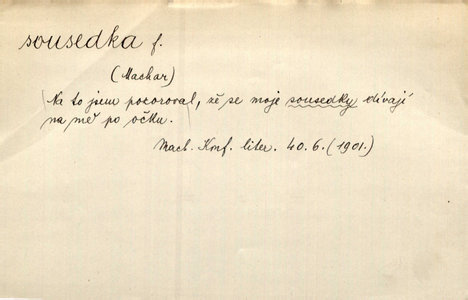 sousedka f.
(Machar)
Na to jsem pozoroval, že se moje sousedky dívají
na mě po očku.
Mach. Konf. liter. 40.6. (1901.)